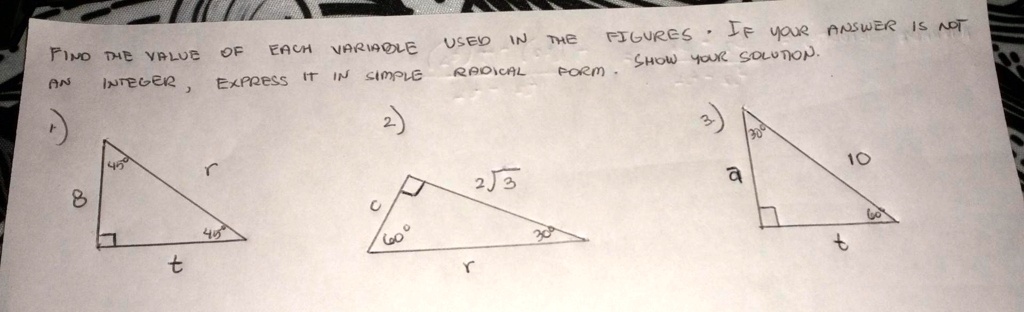 FIND THE VALUE OF EACH VARIABLE USED IN THE FIGURES. IF YOUR ANSWER IS NOT
AN INTEGER, EXPRESS IT IN SIMPLE RADICAL FORM. SHOW YOUR SOLUTION.
1)
45°
8
r
45°
t
2)
2√3
c
60°
30°
r
3)
30°
10
a
60°
t